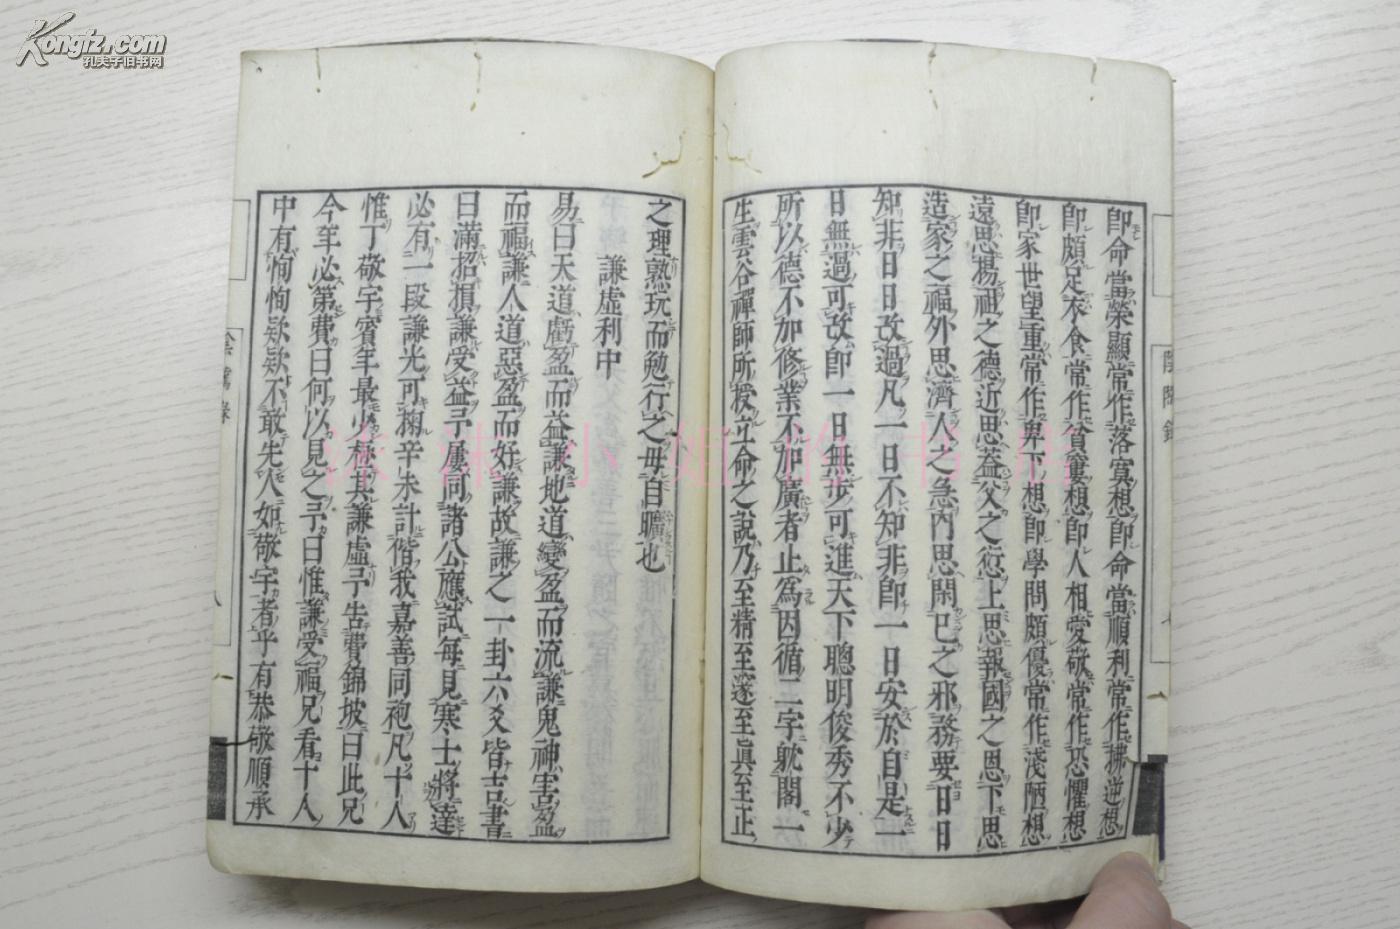 Kongfz.com
孔夫子旧书网
即命當榮顯常作落寞想即命當順利常作拂逆想
即頗足衣食常作貧窶想即人相愛敬常作恐懼想
即家世望重常作卑下想即學問頗優常作淺陋想
遠思揚祖之德近思蓋父之愆上思報國之恩下思
造家之福外思濟人之急内思閑己之邪務要日日
知非日日改過凡一日不知非即一日安於自是一
日無過可改即一日無步可進天下聰明俊秀不少
所以德不加修業不加廣者止爲因循二字躭閣一
生雲谷禪師所授立命之說乃至精至邃至眞至正
之理熟玩而勉行之毋自曠也
謙虛利中
易曰天道虧盈而益謙地道變盈而流謙鬼神害盈
而福謙人道惡盈而好謙故謙之一卦六爻皆吉書
曰滿招損謙受益予屢同諸公應試每見寒士將達
必有一段謙光可掬辛未計偕我嘉善同袍凡十人
惟丁敬宇賓年最少極其謙虛予告費錦坡曰此兄
今年必第費曰何以見之予曰惟謙受福兄看十人
中有恂恂欵欵不敢先人如敬宇者乎有恭敬順承
陰隲錄
八
沐小姐的书店